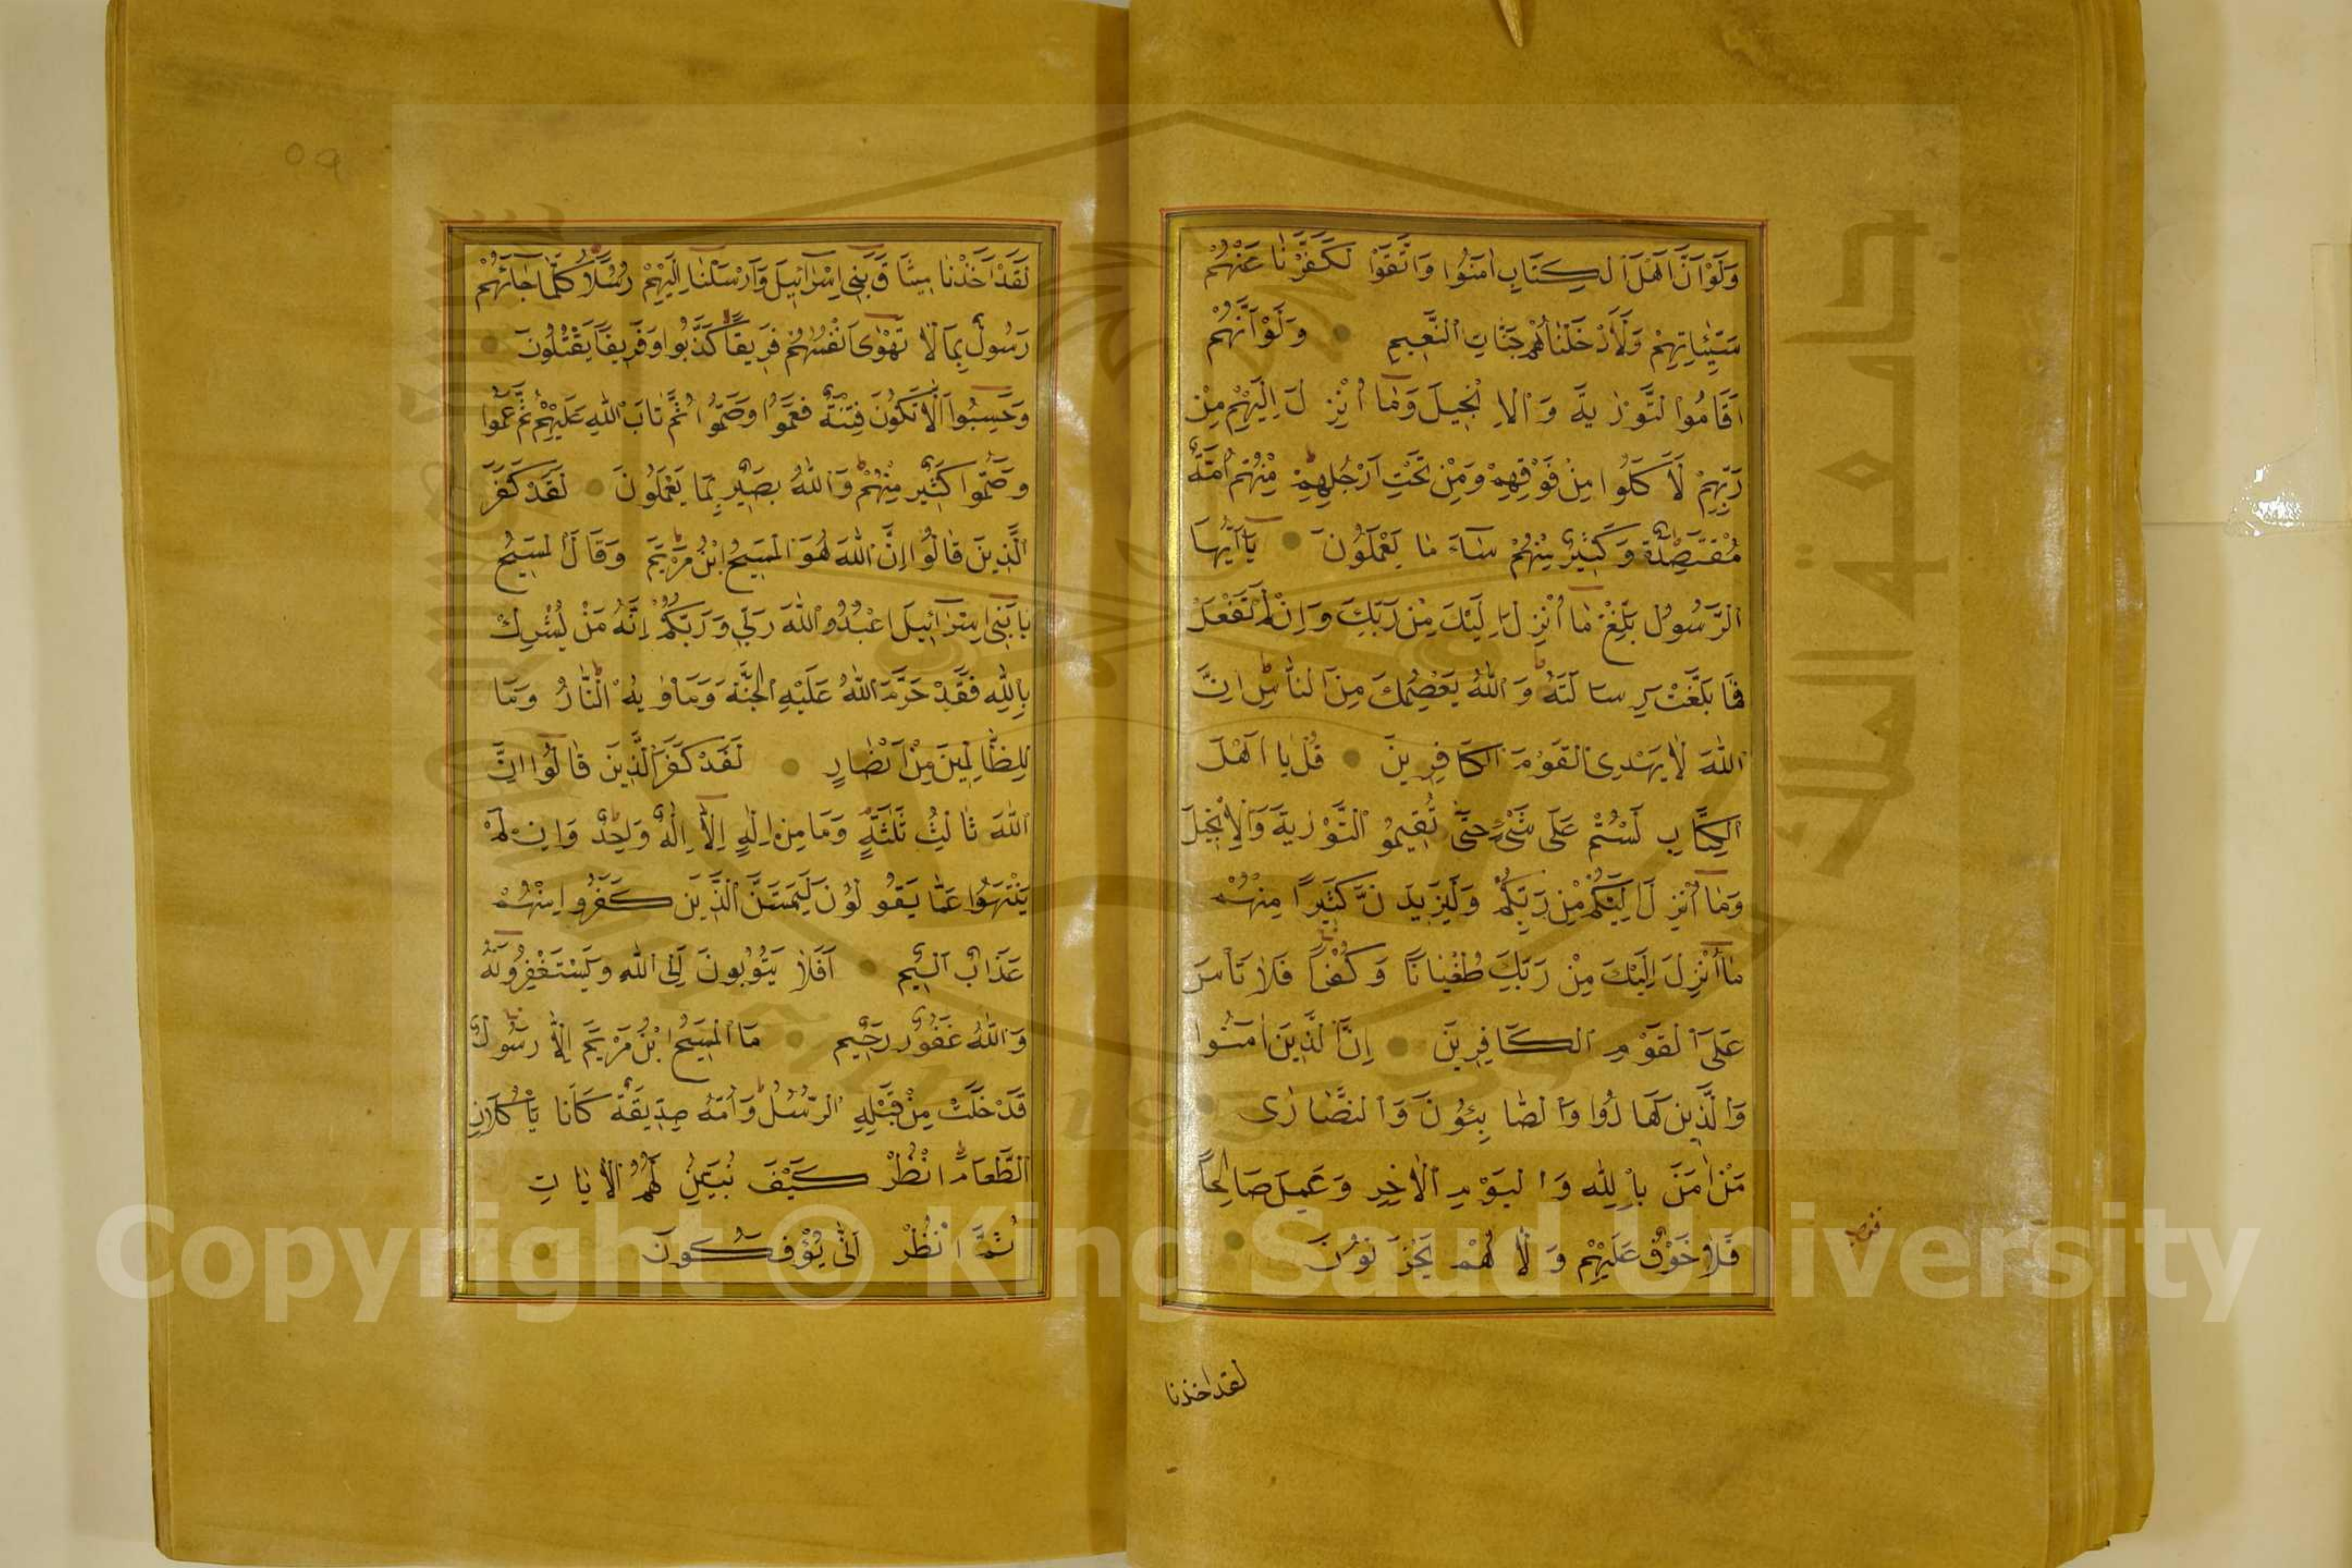 وَلَوْ اَنَّ اَهْلَ الْكِتَابِ اٰمَنُوا وَاتَّقَوْا لَكَفَّرْنَا عَنْهُمْ
سَيِّئَاتِهِمْ وَلَاَدْخَلْنَاهُمْ جَنَّاتِ النَّعِيمِ وَلَوْ اَنَّهُمْ
اَقَامُوا التَّوْرٰيةَ وَالْاِنْجِيلَ وَمَا اُنْزِلَ اِلَيْهِمْ مِنْ
رَبِّهِمْ لَاَكَلُوا مِنْ فَوْقِهِمْ وَمِنْ تَحْتِ اَرْجُلِهِمْ مِنْهُمْ اُمَّةٌ
مُقْتَصِدَةٌ وَكَثِيرٌ مِنْهُمْ سَاءَ مَا يَعْمَلُونَ يَا اَيُّهَا
الرَّسُولُ بَلِّغْ مَا اُنْزِلَ اِلَيْكَ مِنْ رَبِّكَ وَاِنْ لَمْ تَفْعَلْ
فَمَا بَلَّغْتَ رِسَالَتَهُ وَاللّٰهُ يَعْصِمُكَ مِنَ النَّاسِ اِنَّ
اللّٰهَ لَا يَهْدِى الْقَوْمَ الْكَافِرِينَ قُلْ يَا اَهْلَ
الْكِتَابِ لَسْتُمْ عَلٰى شَىْءٍ حَتّٰى تُقِيمُوا التَّوْرٰيةَ وَالْاِنْجِيلَ
وَمَا اُنْزِلَ اِلَيْكُمْ مِنْ رَبِّكُمْ وَلَيَزِيدَنَّ كَثِيرًا مِنْهُمْ
مَا اُنْزِلَ اِلَيْكَ مِنْ رَبِّكَ طُغْيَانًا وَكُفْرًا فَلَا تَأْسَ
عَلَى الْقَوْمِ الْكَافِرِينَ اِنَّ الَّذِينَ اٰمَنُوا
وَالَّذِينَ هَادُوا وَالصَّابِئُونَ وَالنَّصَارٰى
مَنْ اٰمَنَ بِاللّٰهِ وَالْيَوْمِ الْاٰخِرِ وَعَمِلَ صَالِحًا
فَلَا خَوْفٌ عَلَيْهِمْ وَلَا هُمْ يَحْزَنُونَ
لقد اخذنا
لَقَدْ اَخَذْنَا مِيثَاقَ بَنِى اِسْرَائِيلَ وَاَرْسَلْنَا اِلَيْهِمْ رُسُلًا كُلَّمَا جَاءَهُمْ
رَسُولٌ بِمَا لَا تَهْوٰى اَنْفُسُهُمْ فَرِيقًا كَذَّبُوا وَفَرِيقًا يَقْتُلُونَ
وَحَسِبُوا اَلَّا تَكُونَ فِتْنَةٌ فَعَمُوا وَصَمُّوا ثُمَّ تَابَ اللّٰهُ عَلَيْهِمْ ثُمَّ عَمُوا
وَصَمُّوا كَثِيرٌ مِنْهُمْ وَاللّٰهُ بَصِيرٌ بِمَا يَعْمَلُونَ لَقَدْ كَفَرَ
الَّذِينَ قَالُوا اِنَّ اللّٰهَ هُوَ الْمَسِيحُ ابْنُ مَرْيَمَ وَقَالَ الْمَسِيحُ
يَا بَنِى اِسْرَائِيلَ اعْبُدُوا اللّٰهَ رَبِّى وَرَبَّكُمْ اِنَّهُ مَنْ يُشْرِكْ
بِاللّٰهِ فَقَدْ حَرَّمَ اللّٰهُ عَلَيْهِ الْجَنَّةَ وَمَأْوٰيهُ النَّارُ وَمَا
لِلظَّالِمِينَ مِنْ اَنْصَارٍ لَقَدْ كَفَرَ الَّذِينَ قَالُوا اِنَّ
اللّٰهَ ثَالِثُ ثَلٰثَةٍ وَمَا مِنْ اِلٰهٍ اِلَّا اِلٰهٌ وَاحِدٌ وَاِنْ لَمْ
يَنْتَهُوا عَمَّا يَقُولُونَ لَيَمَسَّنَّ الَّذِينَ كَفَرُوا مِنْهُمْ
عَذَابٌ اَلِيمٌ اَفَلَا يَتُوبُونَ اِلَى اللّٰهِ وَيَسْتَغْفِرُونَهُ
وَاللّٰهُ غَفُورٌ رَحِيمٌ مَا الْمَسِيحُ ابْنُ مَرْيَمَ اِلَّا رَسُولٌ
قَدْ خَلَتْ مِنْ قَبْلِهِ الرُّسُلُ وَاُمُّهُ صِدِّيقَةٌ كَانَا يَأْكُلَانِ
الطَّعَامَ انْظُرْ كَيْفَ نُبَيِّنُ لَهُمُ الْاٰيَاتِ
ثُمَّ انْظُرْ اَنّٰى يُؤْفَكُونَ
Copyright © King Saud University